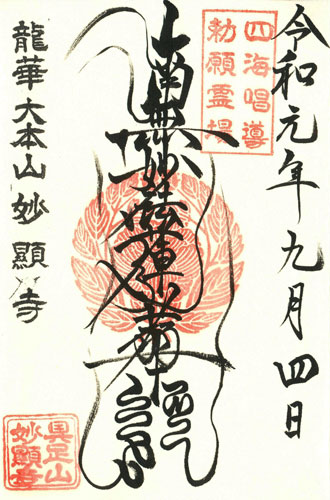 令和元年九月四日
四海唱導
勅願霊場
南無妙法蓮華経
龍華大本山妙顯寺
具足山
妙顕寺